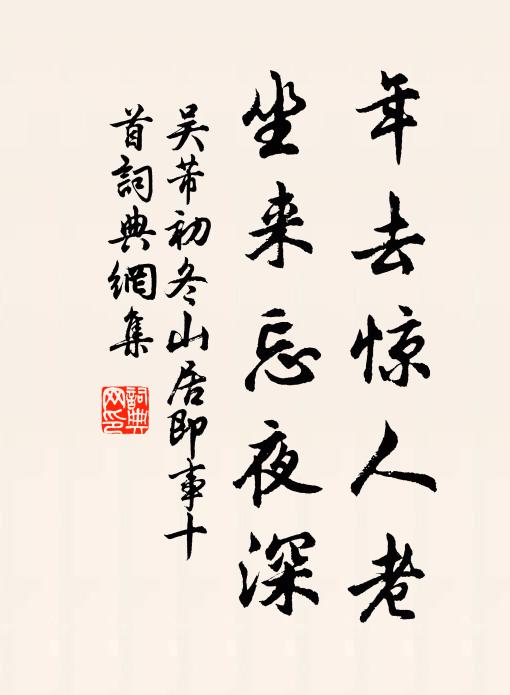 年去惊人老
坐来忘夜深
吴芾初冬山居即事十
首詞典網集
詞典
网印